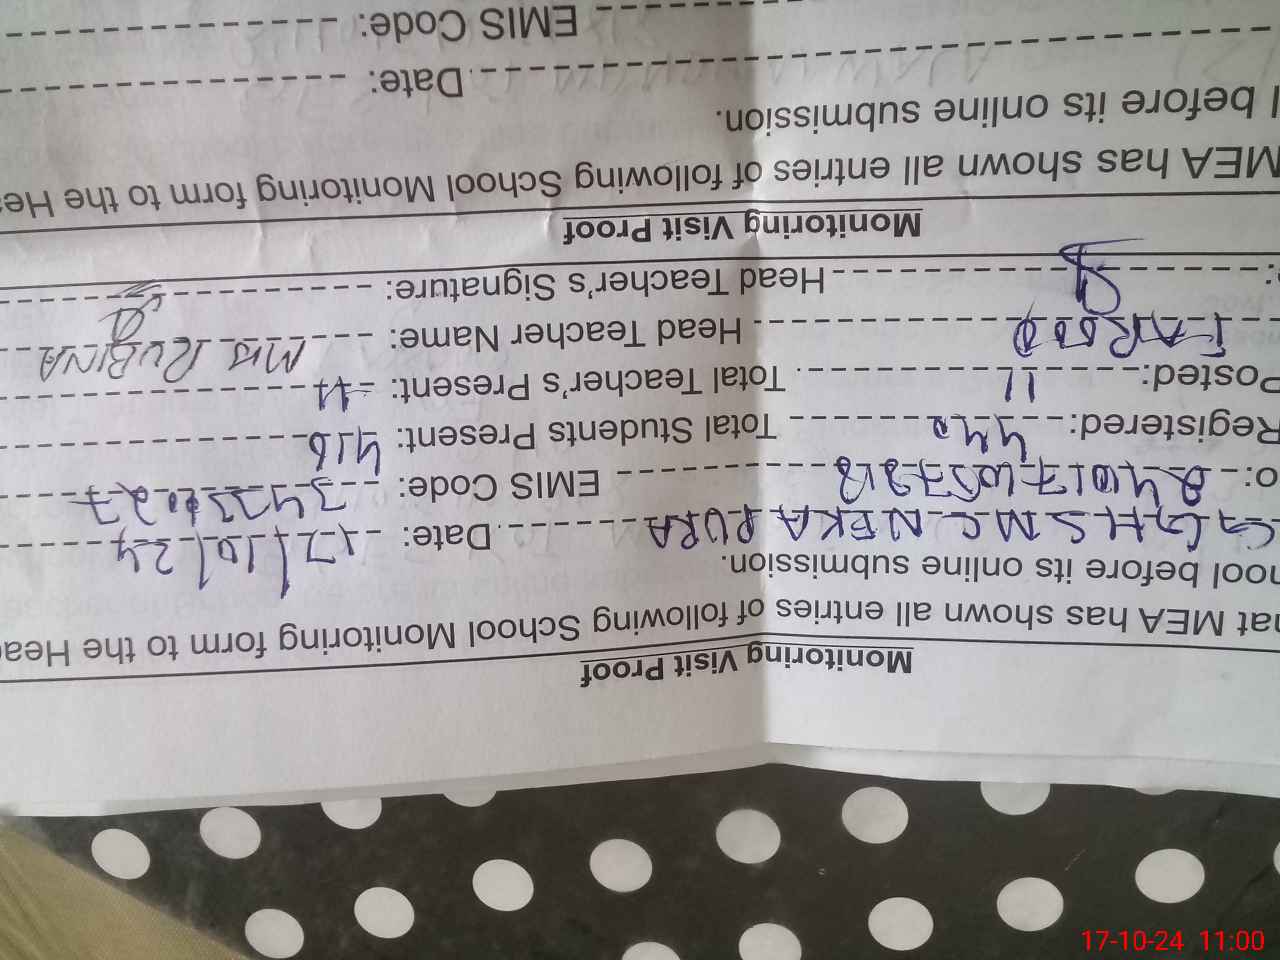 Monitoring Visit Proof
hat MEA has shown all entries of following School Monitoring form to the Hea
hool before its online submission.
GGHSMC NEKA PURA Date: 17/10/24
o: EMIS Code:
Registered: 442 Total Students Present: 416
Posted: 11 Total Teacher's Present: 11
FAROOQ Head Teacher Name: MIS RUBINA
: Head Teacher's Signature:
Monitoring Visit Proof
MEA has shown all entries of following School Monitoring form to the He
l before its online submission.
Date:
EMIS Code:
17-10-24 11:00